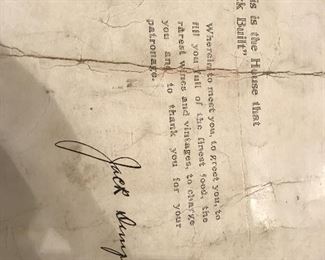 is is the House that
ck Built"
Wherein to meet you, to greet you, to
fill you full of the finest food, the
rarest wines and vintages, to charge
you and to thank you for your
patronage.
Jack Demp